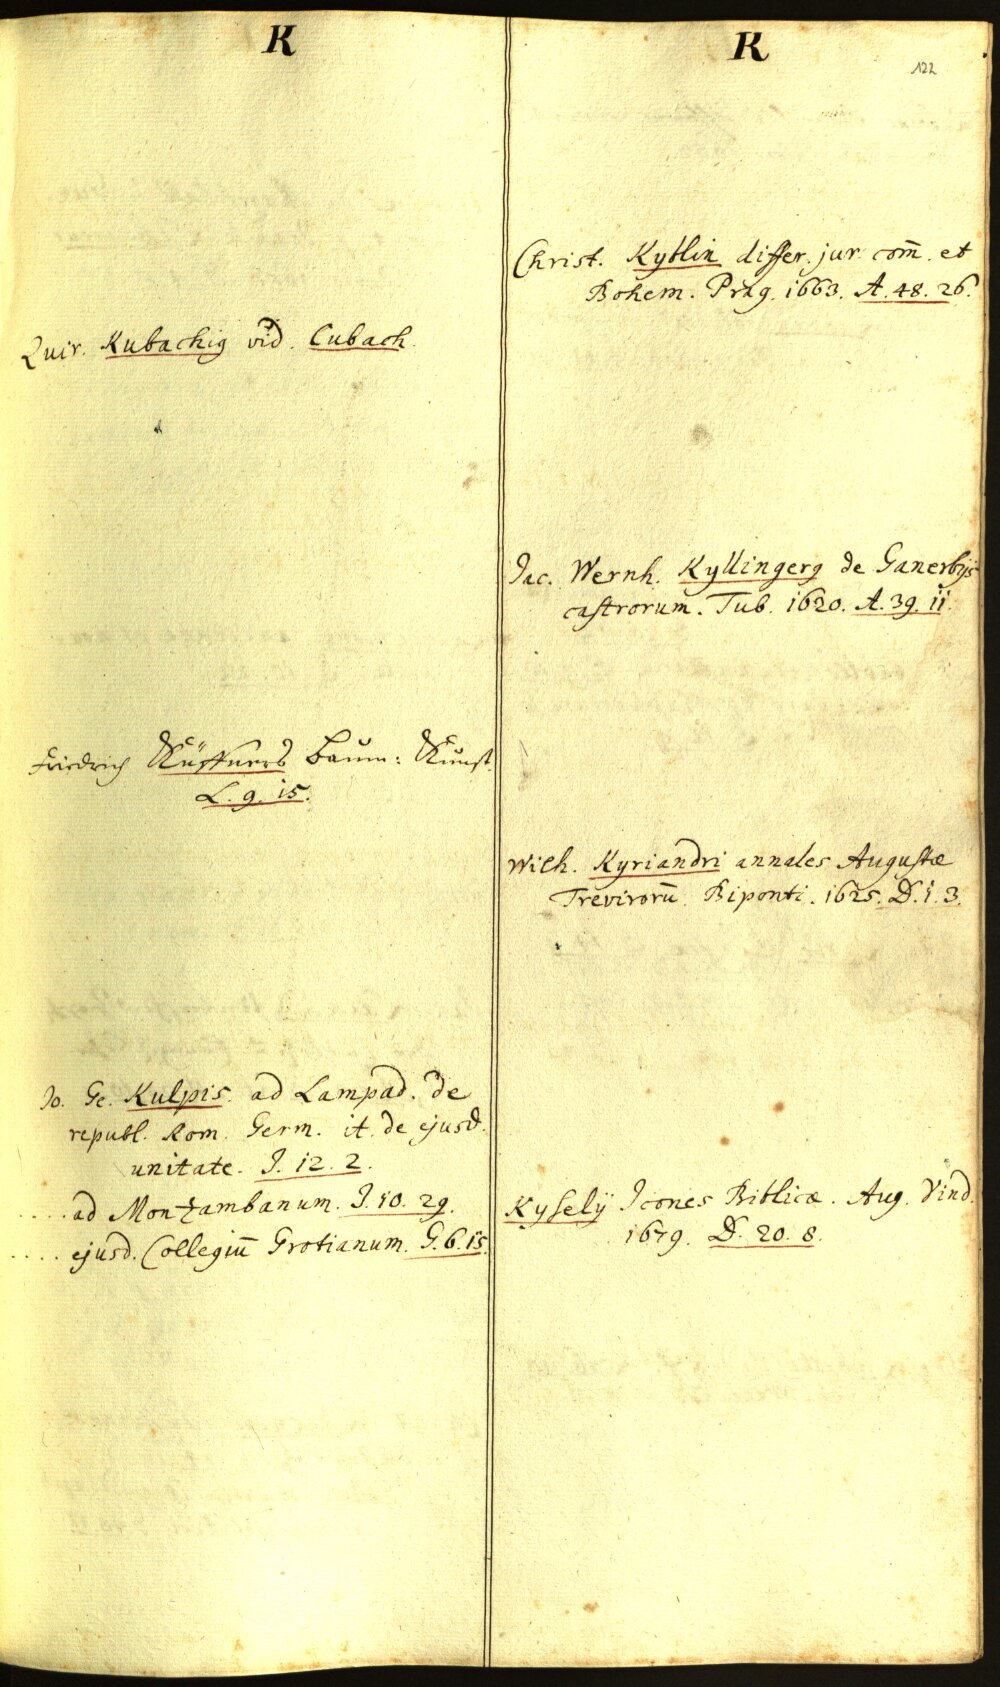 K
Quir. Kubachig vid. Cubach.
Friedrich Küffners Baum: Kunst.
L. 9. 15.
Jo. Ge. Kulpis. ad Lampad. de
republ. Rom. Germ. it. de ejusd.
unitate. J. 12. 2.
.... ad Monzambanum. J. 10. 29.
.... ejusd. Collegiū Grotianum. G. 6. 15.
K
122
Christ. Kyblin differ. jur. com̄. et
Bohem. Prag. 1663. A. 48. 26.
Jac. Wernh. Kyllingerg de Ganerbijs
castrorum. Tub. 1620. A. 39. 11.
Wilh. Kyriandri annales Augustæ
Trevirorū. Biponti. 1625. D. 1. 3.
Kyselÿ Icones Biblicæ. Aug. Vind.
1679. D. 20. 8.